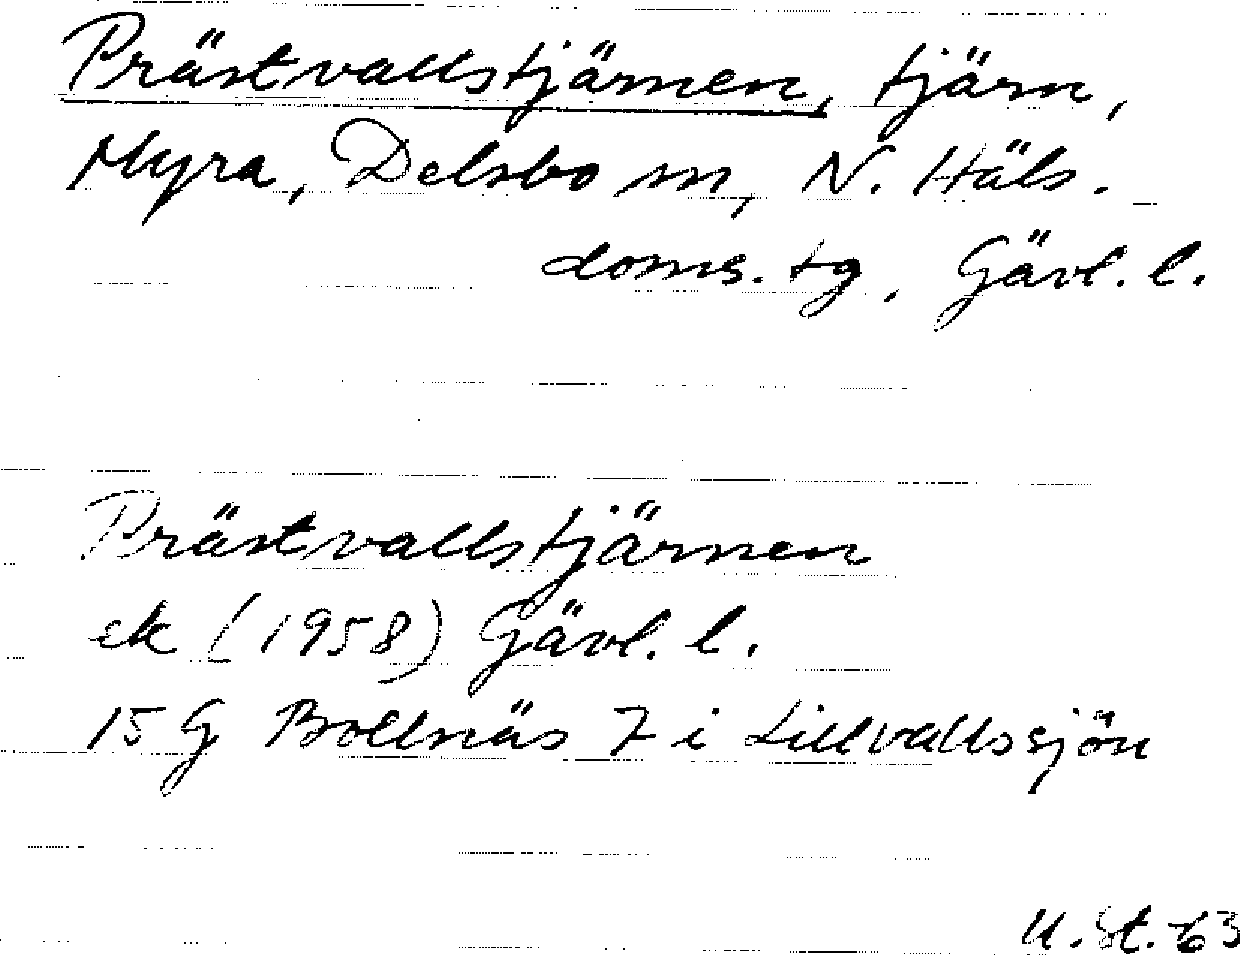 Prästvallstjärnen, tjärn,
Myra, Delsbo sn, N. Häls.
doms. tg, Gävl. l.
Prästvallstjärnen
ek (1958) Gävl. l.
15 G Bollnäs 7 i Lillvallssjön
U. St. 63